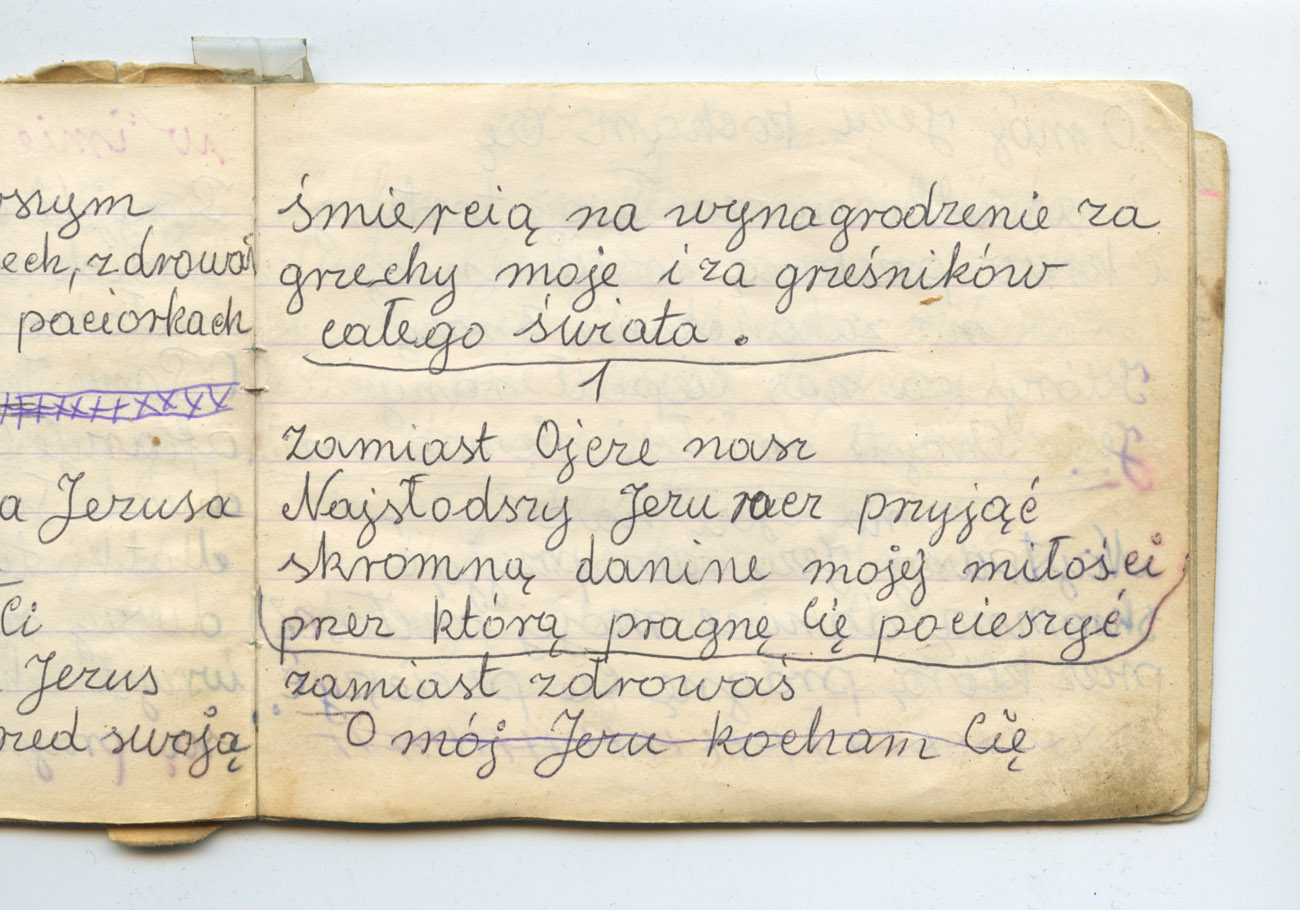 rszym
ech, zdrowaś
paciorkach
a Jezusa
Ci
Jezus
rzed swoją
śmiercią na wynagrodzenie za
grzechy moje i za grześników
całego świata.
1
zamiast Ojcze nasz
Najsłodszy Jezu racz przyjąć
skromną danine mojej miłości
przez którą pragnę Cię pocieszyć
zamiast zdrowaś
O mój Jezu kocham Cię